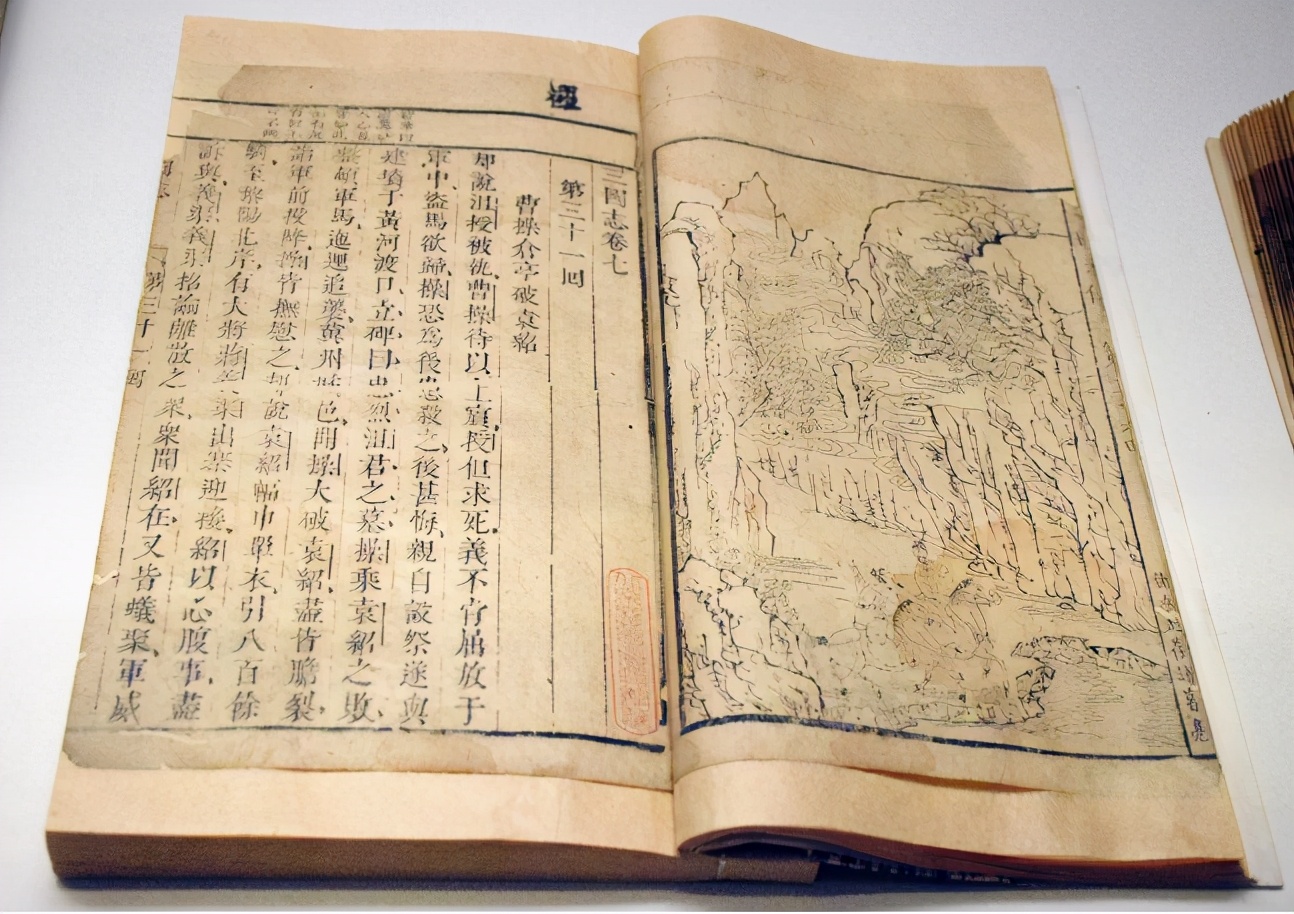 三國志卷七
第三十一回
曹操倉亭破袁紹
却說沮授被執、曹操待以上賔、授但求死、義不肯屈、放于
軍中、盗馬欲歸、操恐爲後患、殺之、後甚悔、親自設祭、遂與
建墳于黃河渡口、立碑曰、忠烈沮君之墓、操乘袁紹之敗、
整頓軍馬、迤邐追襲、冀州城邑、聞操大破袁紹、盡皆膽裂、
詣軍前投降、操皆撫慰之、却說袁紹幅巾單衣、引八百餘
騎、至黎陽北岸、有大將蔣義渠出寨迎接、紹以心腹事、盡
訴與義渠、義渠招諭離散之衆、衆聞紹在、又皆蟻聚、軍威
第三十一回